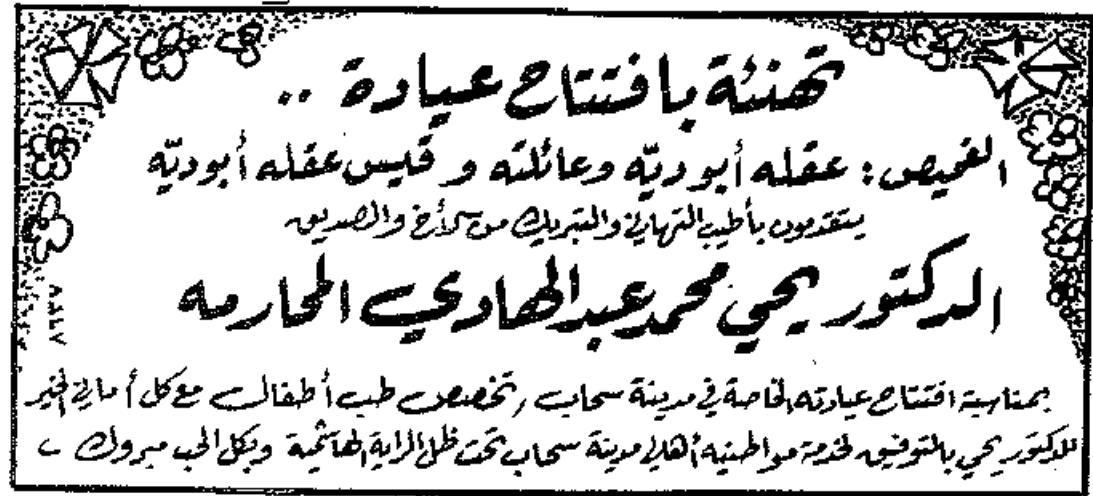 تهنئة بافتتاح عيادة ..
القميص : عقله أبوديّه وعائلته و قيس عقله أبوديّه
يتقدمون بأطيب التهاني والتبريك من الأخ والصديق
الدكتور يحي محمد عبدالهادي المحارمه
بمناسبة افتتاح عيادته الخاصة في مدينة سحاب ، تخصص طب أطفال مع كل أماني الخير
للدكتور يحي بالتوفيق لخدمة مواطنيه أهالي مدينة سحاب تحت ظل الراية الهاشمية وبكل الحب مبروك